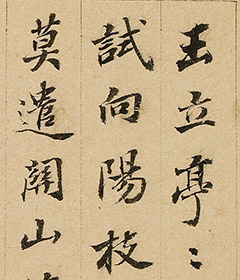 玉立亭〻
試向陽枝
莫遣關山